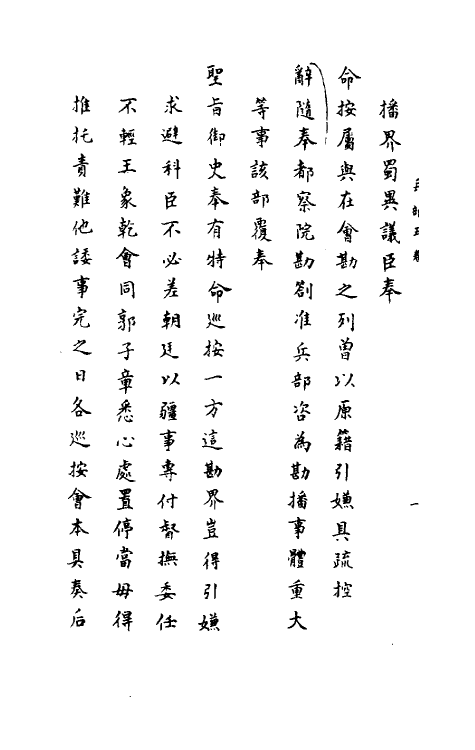 播界蜀異議臣奉
命按屬與在會勘之列曾以原籍引嫌具疏控
辭隨奉都察院勘劄准兵部咨為勘播事體重大
等事該部覆奉
聖旨御史奉有特命巡按一方這勘界豈得引嫌
求避科臣不必差朝廷以疆事專付督撫委任
不輕王象乾會同郭子章悉心處置停當毋得
推托責難他諉事完之日各巡按會本具奏后
一